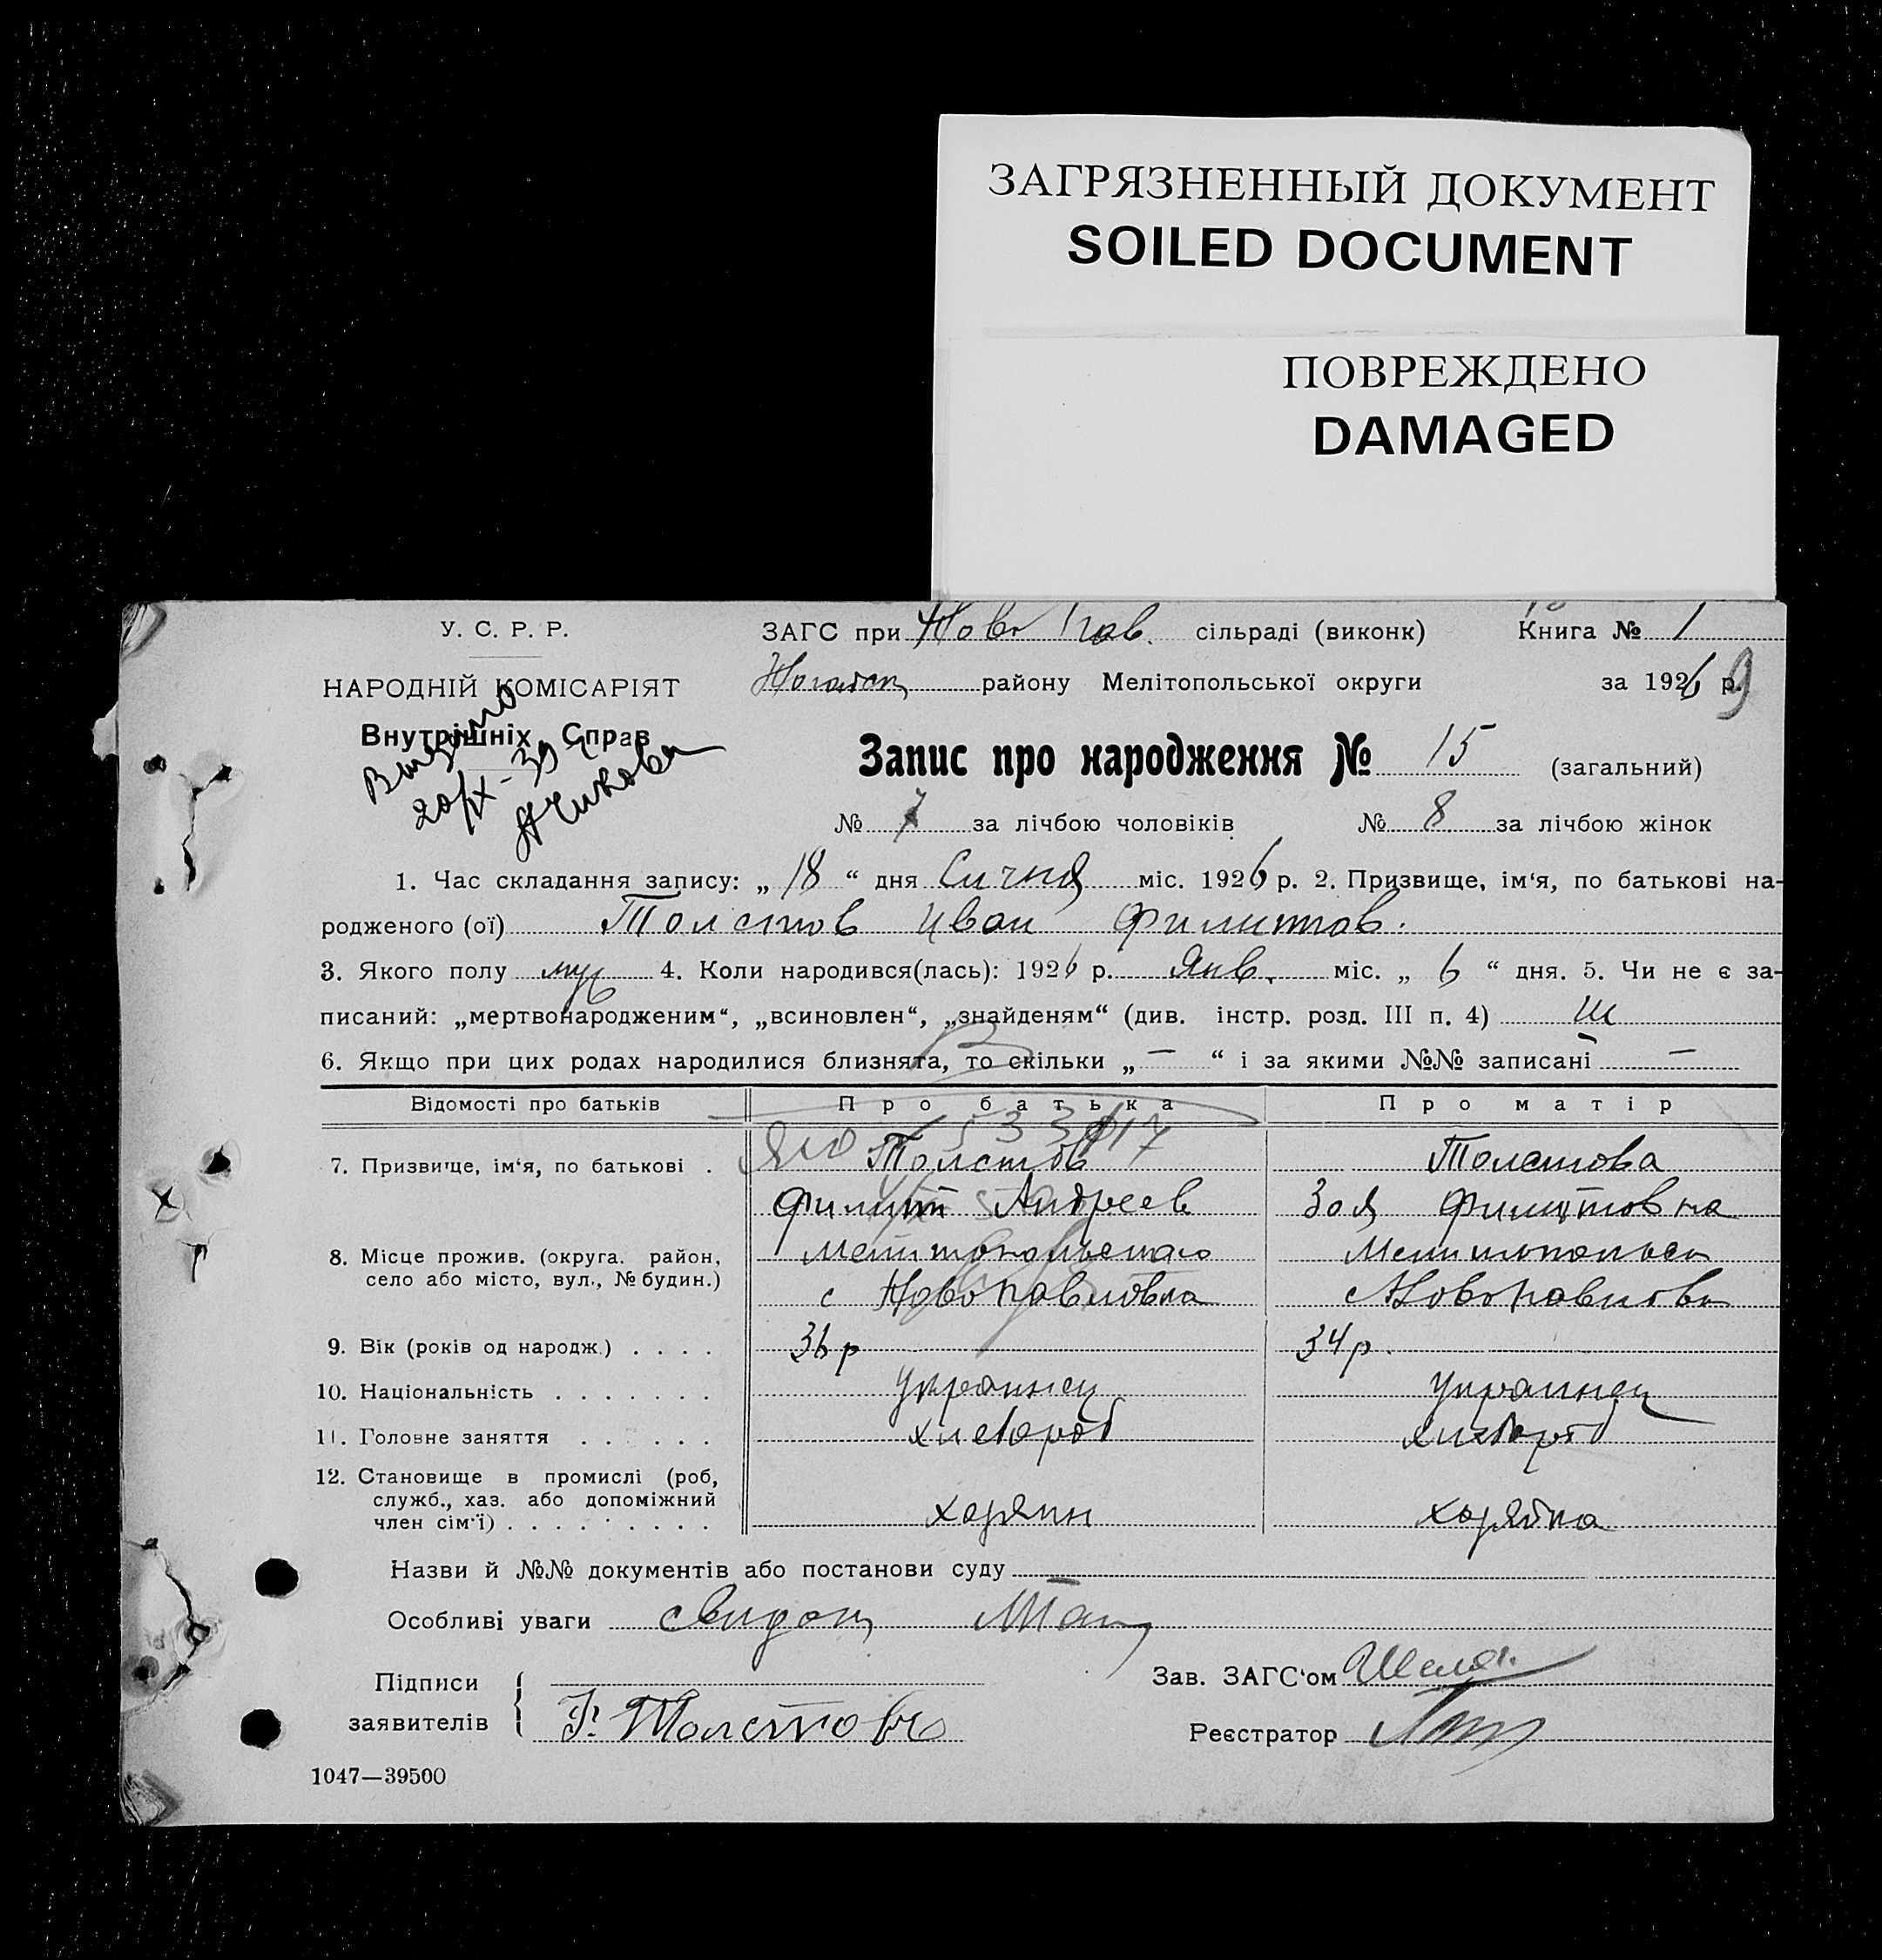 ЗАГРЯЗНЕННЫЙ ДОКУМЕНТ
SOILED DOCUMENT
ПОВРЕЖДЕНО
DAMAGED
У. С. Р. Р.
ЗАГС при Ново Пав. сільраді (виконк) Книга № 1
НАРОДНІЙ КОМІСАРІЯТ
району Мелітопольської округи за 1926 р.
Внутрішніх Справ
Выдано
20/IX-39
Запис про народження № 15 (загальний)
№ 7 за лічбою чоловіків № 8 за лічбою жінок
1. Час складання запису: „ 18 “ дня Січня міс. 1926 р. 2. Призвище, ім‘я, по батькові на-
родженого (ої) Толстов Иван Филиппов.
3. Якого полу муж 4. Коли народився(лась): 1926 р. Янв. міс. „ 6 “ дня. 5. Чи не є за-
писаний: „мертвонародженим“, „всиновлен“, „знайденям“ (див. інстр. розд. III п. 4)
6. Якщо при цих родах народилися близнята, то скільки „ — “ і за якими №№ записані —
Відомості про батьків Про батька Про матір
7. Призвище, ім‘я, по батькові . Толстов Толстова
Филипп Андреев Зоя Филипповна
8. Місце прожив. (округа. район,
село або місто, вул., № будин.)
с Новопавловка с Новопавловк
9. Вік (років од народж.) . . . . 36 р 34 р.
10. Національність . . . . . . . Украинец Украинец
11. Головне заняття . . . . . . хлебороб хлебороб
12. Становище в промислі (роб,
служб., хаз. або допоміжний
член сім‘ї) . . . . . . . . . хозяин хозяйка
Назви й №№ документів або постанови суду —
Особливі уваги
Підписи
заявителів Ф. Толстов
Зав. ЗАГС‘ом
Реєстратор
1047—39500